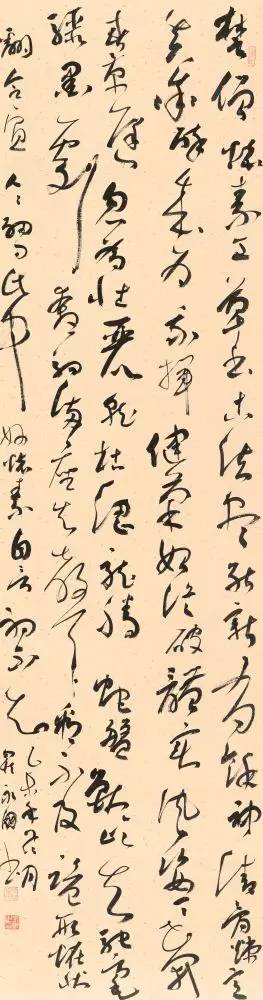 楚僧懷素工草書古法盡能新有餘神清骨竦意
真率醉來為我揮健筆始從破體变風姿一一花開
春景遲忽為壯麗就枯澀龍騰蛇盤獸屹立馳毫
驟墨劇奔駟滿座失聲看不及詭形怪狀
翻合宜人人細問此中妙懷素自言初不知
乙未年冬月
書